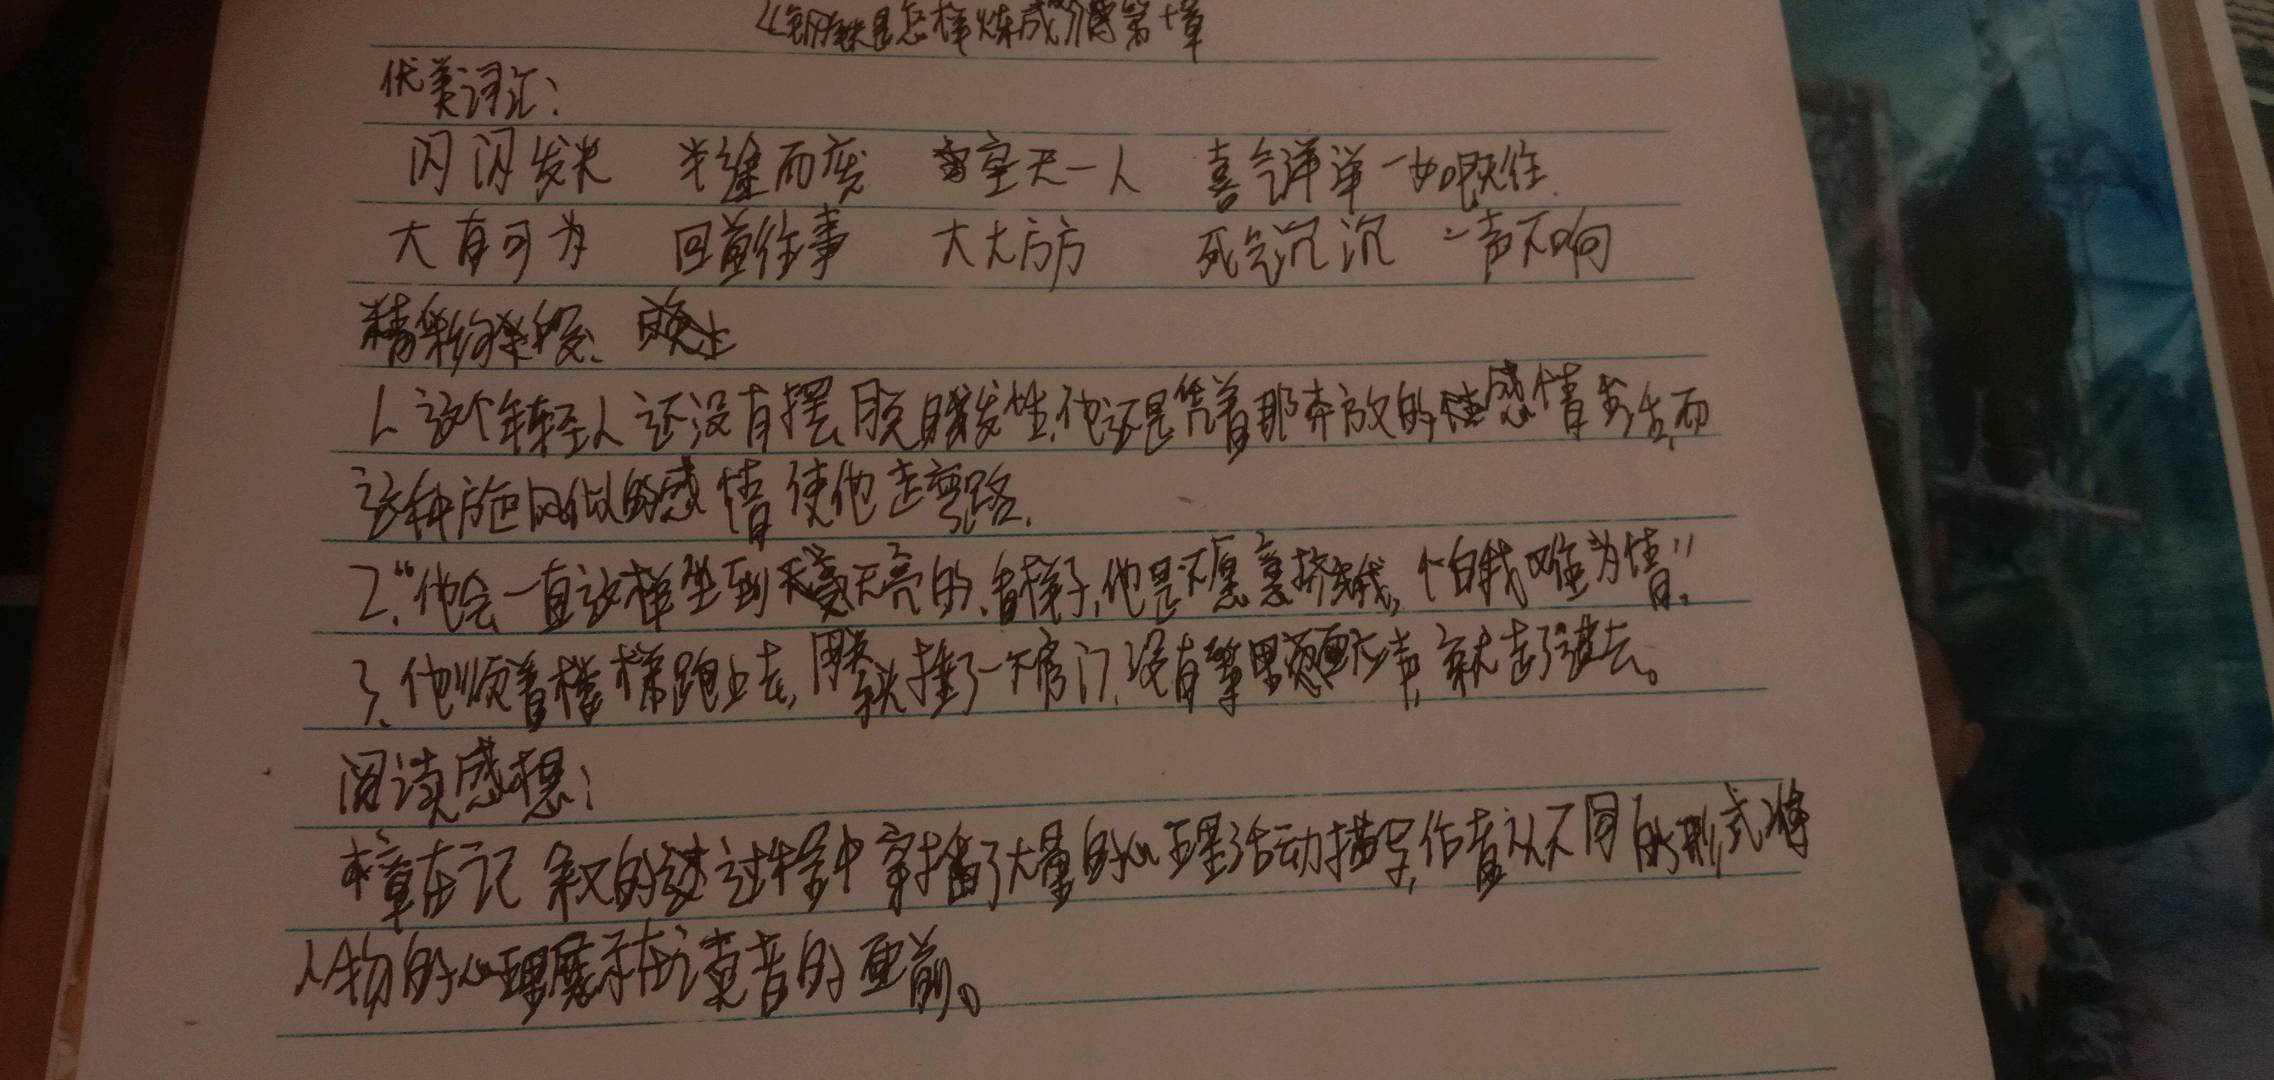 《钢铁是怎样炼成的》第十章
优美词汇:
闪闪发光 半途而废 室无一人 喜气洋洋 一如既往.
大有可为 回首往事 大大方方 死气沉沉 一声不响
精彩
1、这个年轻人还没有摆脱自发性,他还是凭着那奔放的感情生活,而
这种旋风似的感情使他走弯路.
2.“他会一直这样坐到天亮的,看样子,他是不愿意挤我,怕我难为情”.
3、他顺着楼梯跑上去,推了一下房门,没有就走了进去。
阅读感想:
本章在记叙的过程中穿插了大量的心理活动描写,作者以不同的形式将
人物的心理展示在读者的面前。